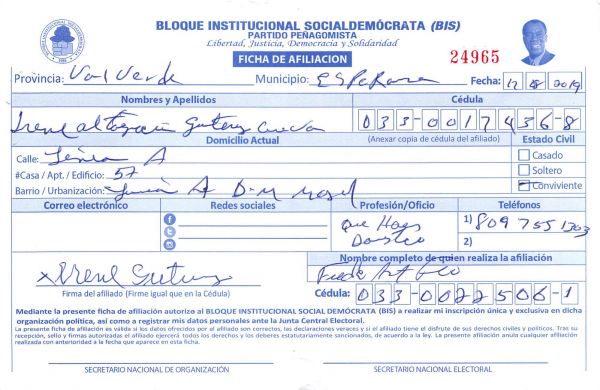 BLOQUE INSTITUCIONAL SOCIALDEMÓCRATA (BIS)
PARTIDO PEÑAGOMISTA
Libertad, Justicia, Democracia y Solidaridad
FICHA DE AFILIACION
24965
Provincia: Valverde Municipio: Esperanza Fecha: 12 8 2019
Nombres y Apellidos Cédula
Irene altagracia Gutierrez Cueva 033-0017436-8
Domicilio Actual (Anexar copia de cédula del afiliado) Estado Civil
Calle: A
#Casa / Apt. / Edificio: 57
Barrio / Urbanización: A
Casado
Soltero
Conviviente
Correo electrónico Redes sociales Profesión/Oficio Teléfonos
Que Haces
1) 809 755 1303
2)
Irene Gutierrez
Firma del afiliado (Firme igual que en la Cédula)
Nombre completo de quien realiza la afiliación
Cédula: 033-0022506-1
Mediante la presente ficha de afiliación autorizo al BLOQUE INSTITUCIONAL SOCIAL DEMÓCRATA (BIS) a realizar mi inscripción única y exclusiva en dicha
organización política, así como a registrar mis datos personales ante la Junta Central Electoral.
La presente ficha de afiliación es válida si los datos ofrecidos por el afiliado son correctos, las declaraciones veraces y si el afiliado tiene el disfrute de sus derechos civiles y políticos. Tras su
recepción, sello y firmas autorizadas el afiliado ejercerá todos los derechos y los deberes estatutariamente sancionados, de acuerdo a la ley. La presente afiliación anula cualquier afiliación
realizada con anterioridad a la fecha que aparece en esta ficha.
SECRETARIO NACIONAL DE ORGANIZACIÓN SECRETARIO NACIONAL ELECTORAL